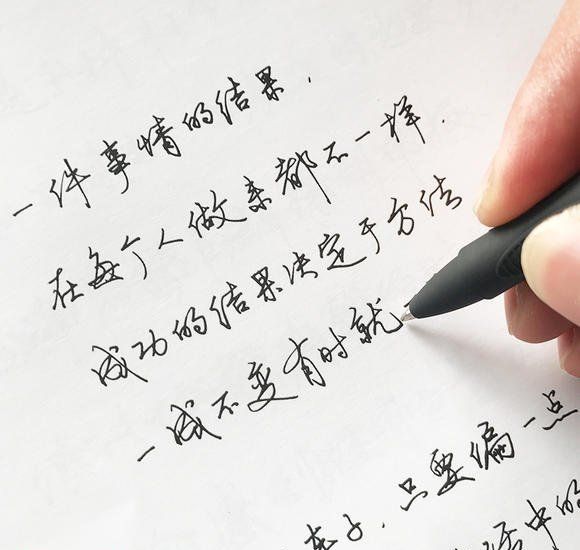 一件事情的结果.
在每个人做来都不一样.
成功的结果决定于方法
一成不变有时就
东子.只要偏一点
活中的